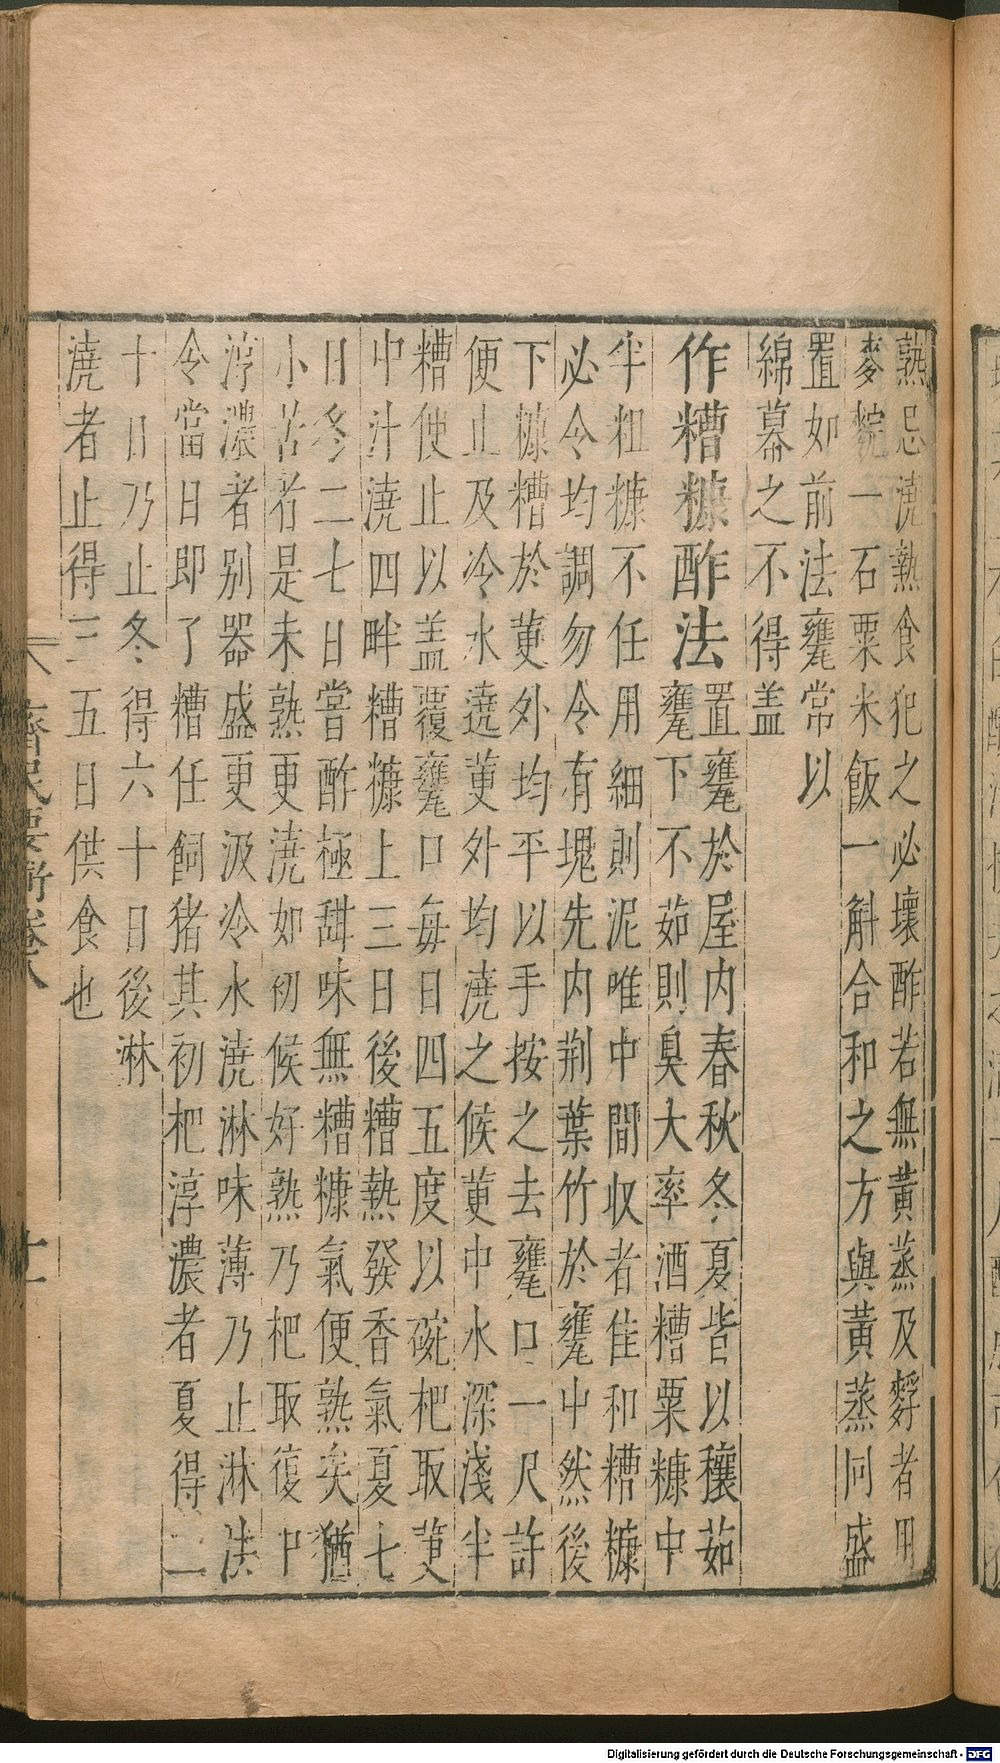 熟忌澆熟食犯之必壞酢若無黃蒸及䴸者用
麥䴷一石粟米飯一斛合和之方與黃蒸同盛
置如前法甕常以
綿幕之不得盖
作糟糠酢法置甕於屋内春秋冬夏皆以穰茹
甕下不茹則臭大率酒糟粟糠中
半粗糠不任用細則泥唯中間収者佳和糟糠
必令均調勿令有塊先内荆葉竹於甕中然後
下糠糟於䔲外均平以手按之去甕口一尺許
便止及冷水遶䔲外均澆之候䔲中水深淺半
糟便止以盖覆甕口每日四五度以碗杷取䔲
中汁澆四畔糟糠上三日後糟熱發香氣夏七
日冬二七日嘗酢極甜味無糟糠氣便熟矣猶
小苦者是未熟更澆如初候好熟乃杷取復中
淳濃者别器盛更汲冷水澆淋味薄乃止淋法
令當日即了糟任飼猪其初杷淳濃者夏得二
十日乃止冬得六十日後淋
澆者止得三五日供食也
齊民要術卷八
Digitalisierung gefördert durch die Deutsche Forschungsgemeinschaft - DFG